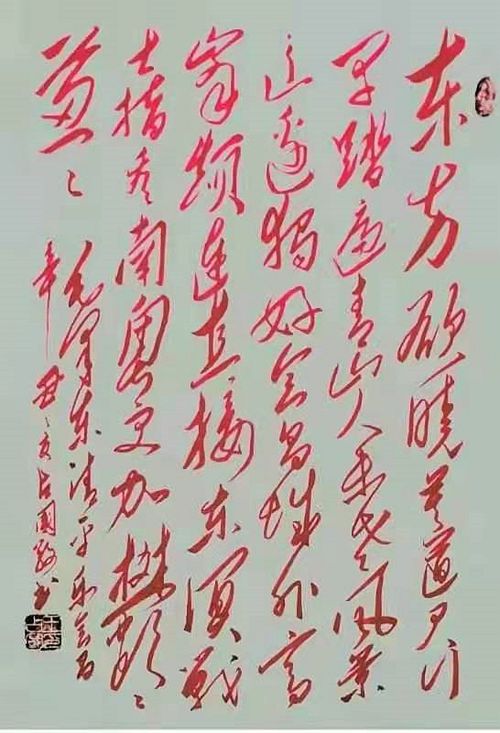 东方欲晓莫道君行
早踏遍青山人未老风景
这边独好会昌城外高
峰颠连直接东溟战
士指看南粤更加郁々
葱々
毛泽东清平乐会昌
辛丑夏占国书